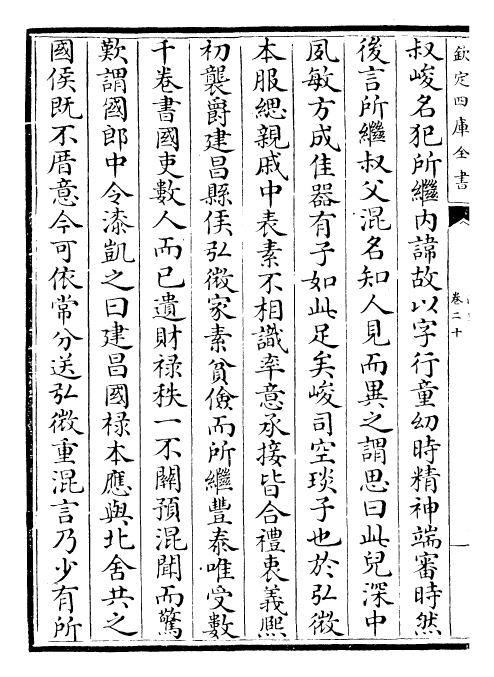 欽定四庫全書
卷二十
叔峻名犯所繼内諱故以字行童幼時精神端審時然
後言所繼叔父混名知人見而異之謂思曰此兒深中
夙敏方成佳器有子如此足矣峻司空琰子也於弘微
本服緦親戚中表素不相識率意承接皆合禮衷義熙
初襲爵建昌縣侯弘微家素貧儉而所繼豐泰唯受數
千卷書國吏數人而已遺財禄秩一不關預混聞而驚
歎謂國郎中令漆凱之曰建昌國禄本應與北舍共之
國侯既不厝意今可依常分送弘微重混言乃少有所